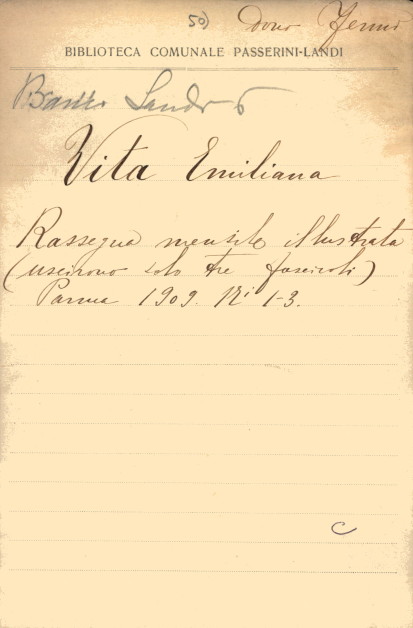 50) Dono Fermi
BIBLIOTECA COMUNALE PASSERINI-LANDI
Landi 6
Vita Emiliana
Rassegna mensile illustrata
(uscirono solo tre fascicoli)
Parma 1909. Ni 1-3.
C